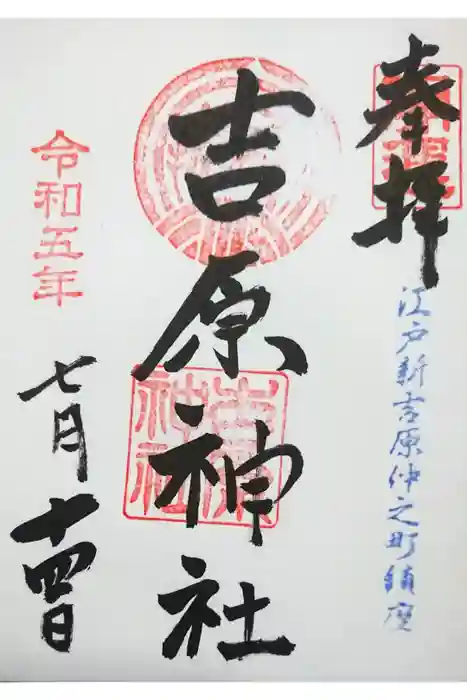 奉拝
江戸新吉原仲之町鎮座
吉原神社
令和五年
七月十四日